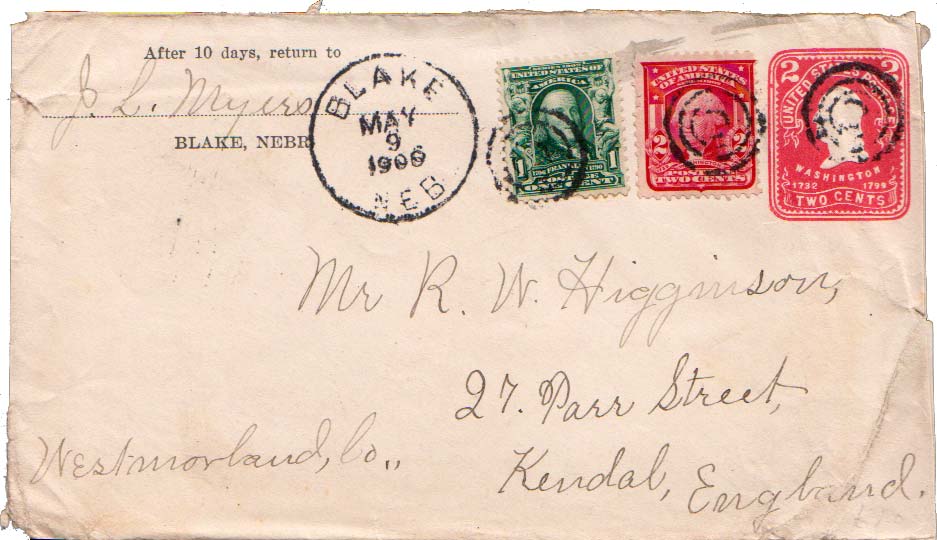 After 10 days, return to
J. L. Myers
BLAKE, NEBR
BLAKE
MAY
9
1906
NEB
SERIES 1902
UNITED STATES OF
AMERICA
1 1
1706 FRANKLIN 1790
POSTAGE
ONE CENT
UNITED STATES
OF AMERICA
2 2
WASHINGTON
POSTAGE
TWO CENTS
2 2
UNITED STATES
WASHINGTON
1732 1799
TWO CENTS
Mr R. W. Higginson,
27. Parr Street,
Westmorland, Co.,,
Kendal, England.